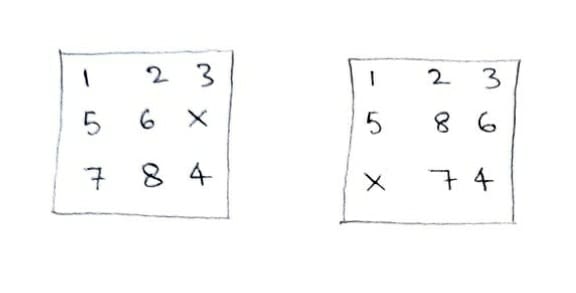 1 2 3
5 6 X
7 8 4
1 2 3
5 8 6
X 7 4